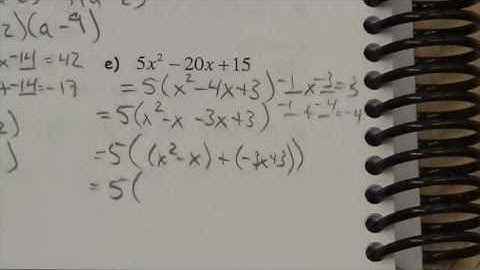 2)(a-9)
x -14 = 42
+ -14 = -17
e) 5x² - 20x + 15
= 5(x² - 4x + 3) -1 x -3 = 3
= 5(x² - x - 3x + 3) -1 + -4 = -4
= 5((x² - x) + (-3x+3))
= 5(